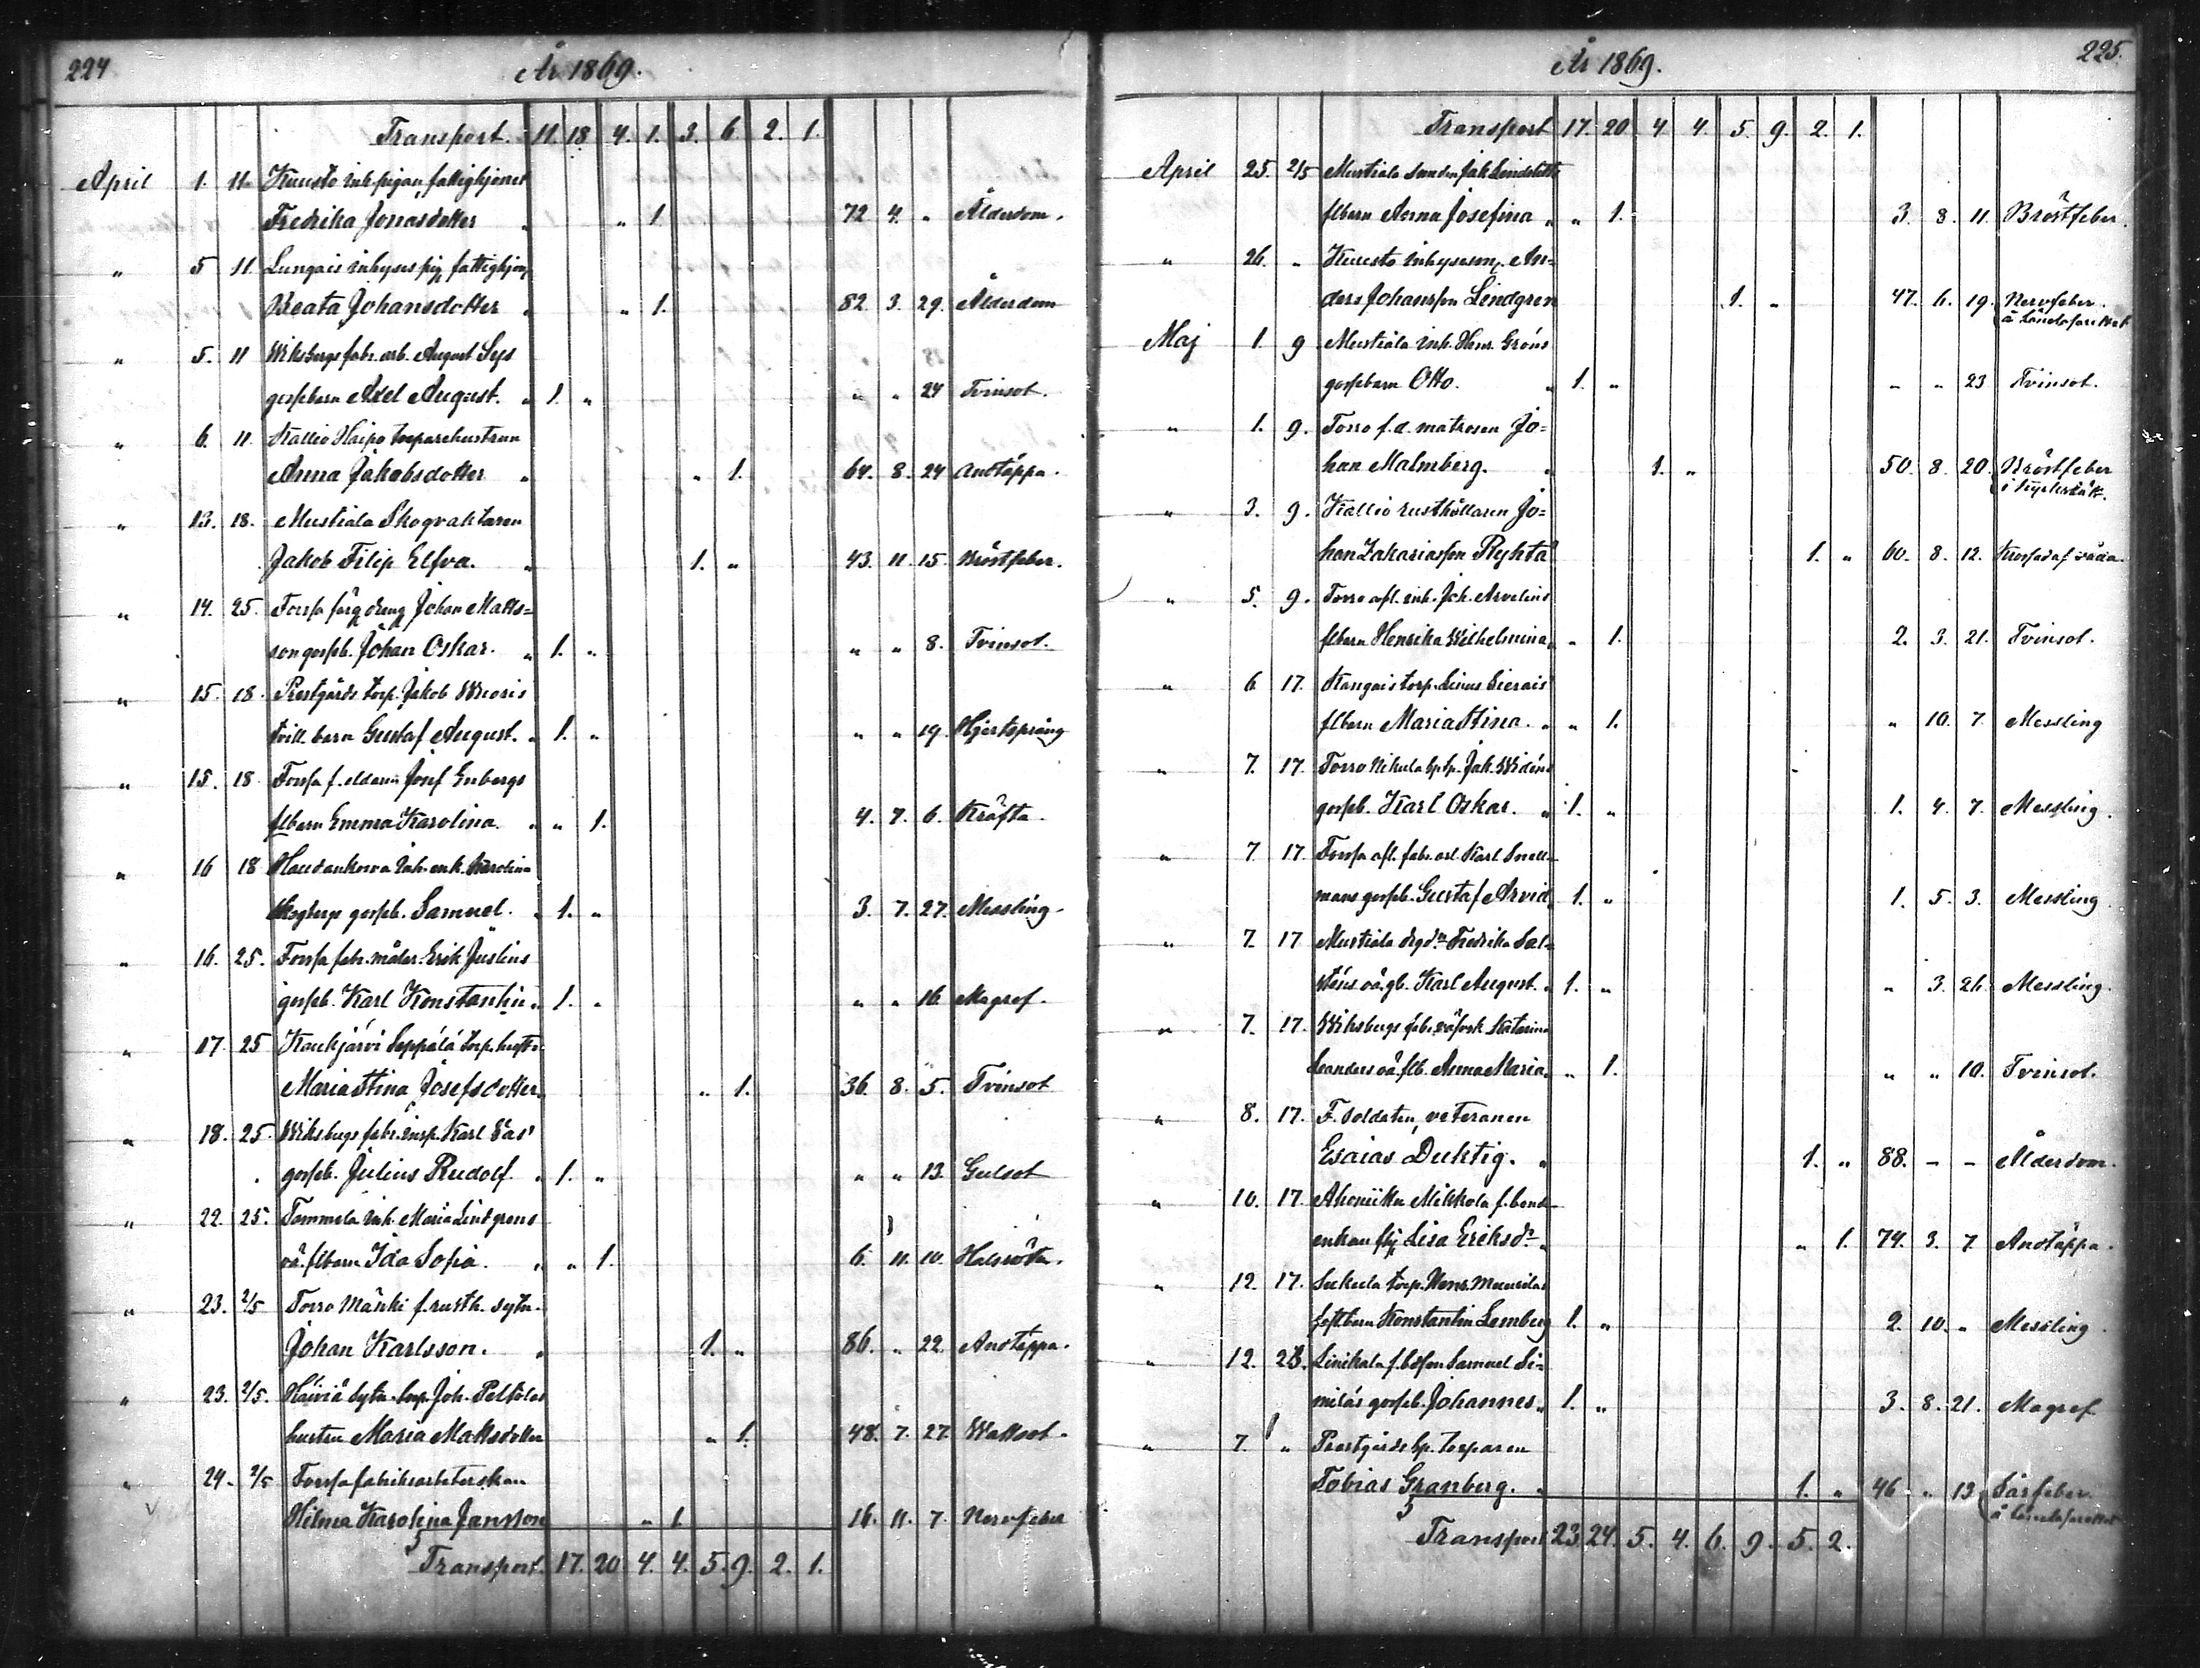 224
År 1869.
Transport. 11. 18. 4. 1. 3. 6. 2. 1.
April 1. 11. Kuusto inh. pigan, fattighjonet
Fredrika Jonasdotter " " 1. 72 4. " Ålderdom.
" 5 11. Lungais inhyses pig. fattighjon
Beata Johansdotter " " 1. 82. 3. 29. Ålderdom
" 5. 11 Wiksbergs fabr. arb. August
gossebarn Axel August. " 1. " " " 24 Tvinsot.
" 6. 11. Kallio Haipo torparehustrun
Anna Jakobsdotter " " 1. 64. 8. 24 Andtäppa.
" 13. 18. Mustiala Skogvaktaren
Jakob Filip Elfva. " 1. " 43. 11. 15. Bröstfeber.
" 14. 25. Forssa färg dreng Johan Matts=
son gosseb. Johan Oskar. " 1. " " " 8. Tvinsot.
" 15. 18. Prestgårds torp. Jakob Wuoris
tvill. barn Gustaf August. " 1. " " " 19. Hjertsprång
" 15. 18. Forssa f. eldaren Josef Enbergs
flbarn Emma Karolina. " " 1. 4. 7. 6. Kräfta.
" 16 18 Haudankorva inh. enk. Karolina
gosseb. Samuel. " 1. " 3. 7. 27. Messling.
" 16. 25. Forssa fabr. målar. Erik Juslins
gosseb. Karl Konstantin. " 1. " " " 16. Magref.
" 17. 25 Kaukjärvi Seppälä torp. hustr.
Maria Stina Josefsdotter. " 1. 36. 8. 5. Tvinsot
" 18. 25. Wiksbergs fabr. insp. Karl
gosseb. Julius Rudolf. " 1. " " " 13. Gulsot
" 22. 25. Tammela inh. Maria Lindgrens
oä. flbarn Ida Sofia. " " 1. 6. 11. 10. Halsröta.
" 23. 2/5 Torro Mäuki f. rusth. sytn.
Johan Karlsson. " 1. " 86. " 22. Andtäppa.
" 23. 2/5. Häiviä sytn. torp. Joh. Peltolas
hustru Maria Mattsdotter " 1. 48. 7. 27. Wattsot.
" 24. 2/5 Forssa fabriksarbeterskan
Hilma Karolina Jansson " 1. 16. 11. 7. Nervfeber
Transport. 17. 20. 4. 4. 5. 9. 2. 1.
225.
År 1869.
Transport 17. 20. 4. 4. 5. 9. 2. 1.
April 25. 2/5 Mustiala Jak Lindstedts
flbarn Anna Josefina " " 1. 3. 8. 11. Bröstfeber.
" 26. " Kuusto inhysesm. An=
ders Johansson Lindgren 1. " 47. 6. 19. Nervfeber.
å Länelasarettet
Maj 1. 9 Mustiala inh. Henr. Gröns
gossebarn Otto. " 1. " " " 23 Tvinsot.
" 1. 9. Torro f. d. matrosen Jo=
han Malmberg. " 1. " 50. 8. 20. Bröstfeber
" 3. 9. Kallio rusthållaren Jo=
han Zakariasson Ryhtä 1. " 60. 8. 12. Krossad af våda.
" 5. 9. Torro afl. inh. Joh. Arvelins
flbarn Henrika Wilhelmina " " 1. 2. 3. 21. Tvinsot.
" 6 17. Kangais torp. Linus Sierais
flbarn Maria Stina. " " 1. " 10. 7. Messling
" 7. 17. Torro Nikula bp. Jak. Widéns
gosseb. Karl Oskar. " 1. " 1. 4. 7. Messling.
" 7. 17. Forssa afl. fabr. arb. Karl Snell=
mans gosseb. Gustaf Arvid 1. " 1. 5. 3. Messling
" 7. 17 Mustiala Fredrika Sal=
oä. gb. Karl August. " 1. " " 3. 26. Messling.
" 7. 17. Wiksbergs fabr. väfvsk Katarina
Leanders oä. flb. Anna Maria. " 1. " " 10. Tvinsot.
" 8. 17. F. Soldaten, veteranen
Esaias Duktig. " 1. " 88. - - Ålderdom.
" 10. 17. Mikkola f. bond=
enkan Lisa Eriksdr " " 1. 74. 3. 7. Andtäppa.
" 12. 17. Sukula torp. Henr.
Konstantin Lemberg 1. " 2. 10. " Messling.
" 12. 23. Liesikala f. Samuel Si=
miläs gosseb. Johannes. " 1. " 3. 8. 21. Magref
" 7. " Prestgårds bp. torparen
Tobias Granberg. " 1. " 46 " 13. Sårfeber.
å Länelasarettet
Transport 23. 24. 5. 4. 6. 9. 5. 2.